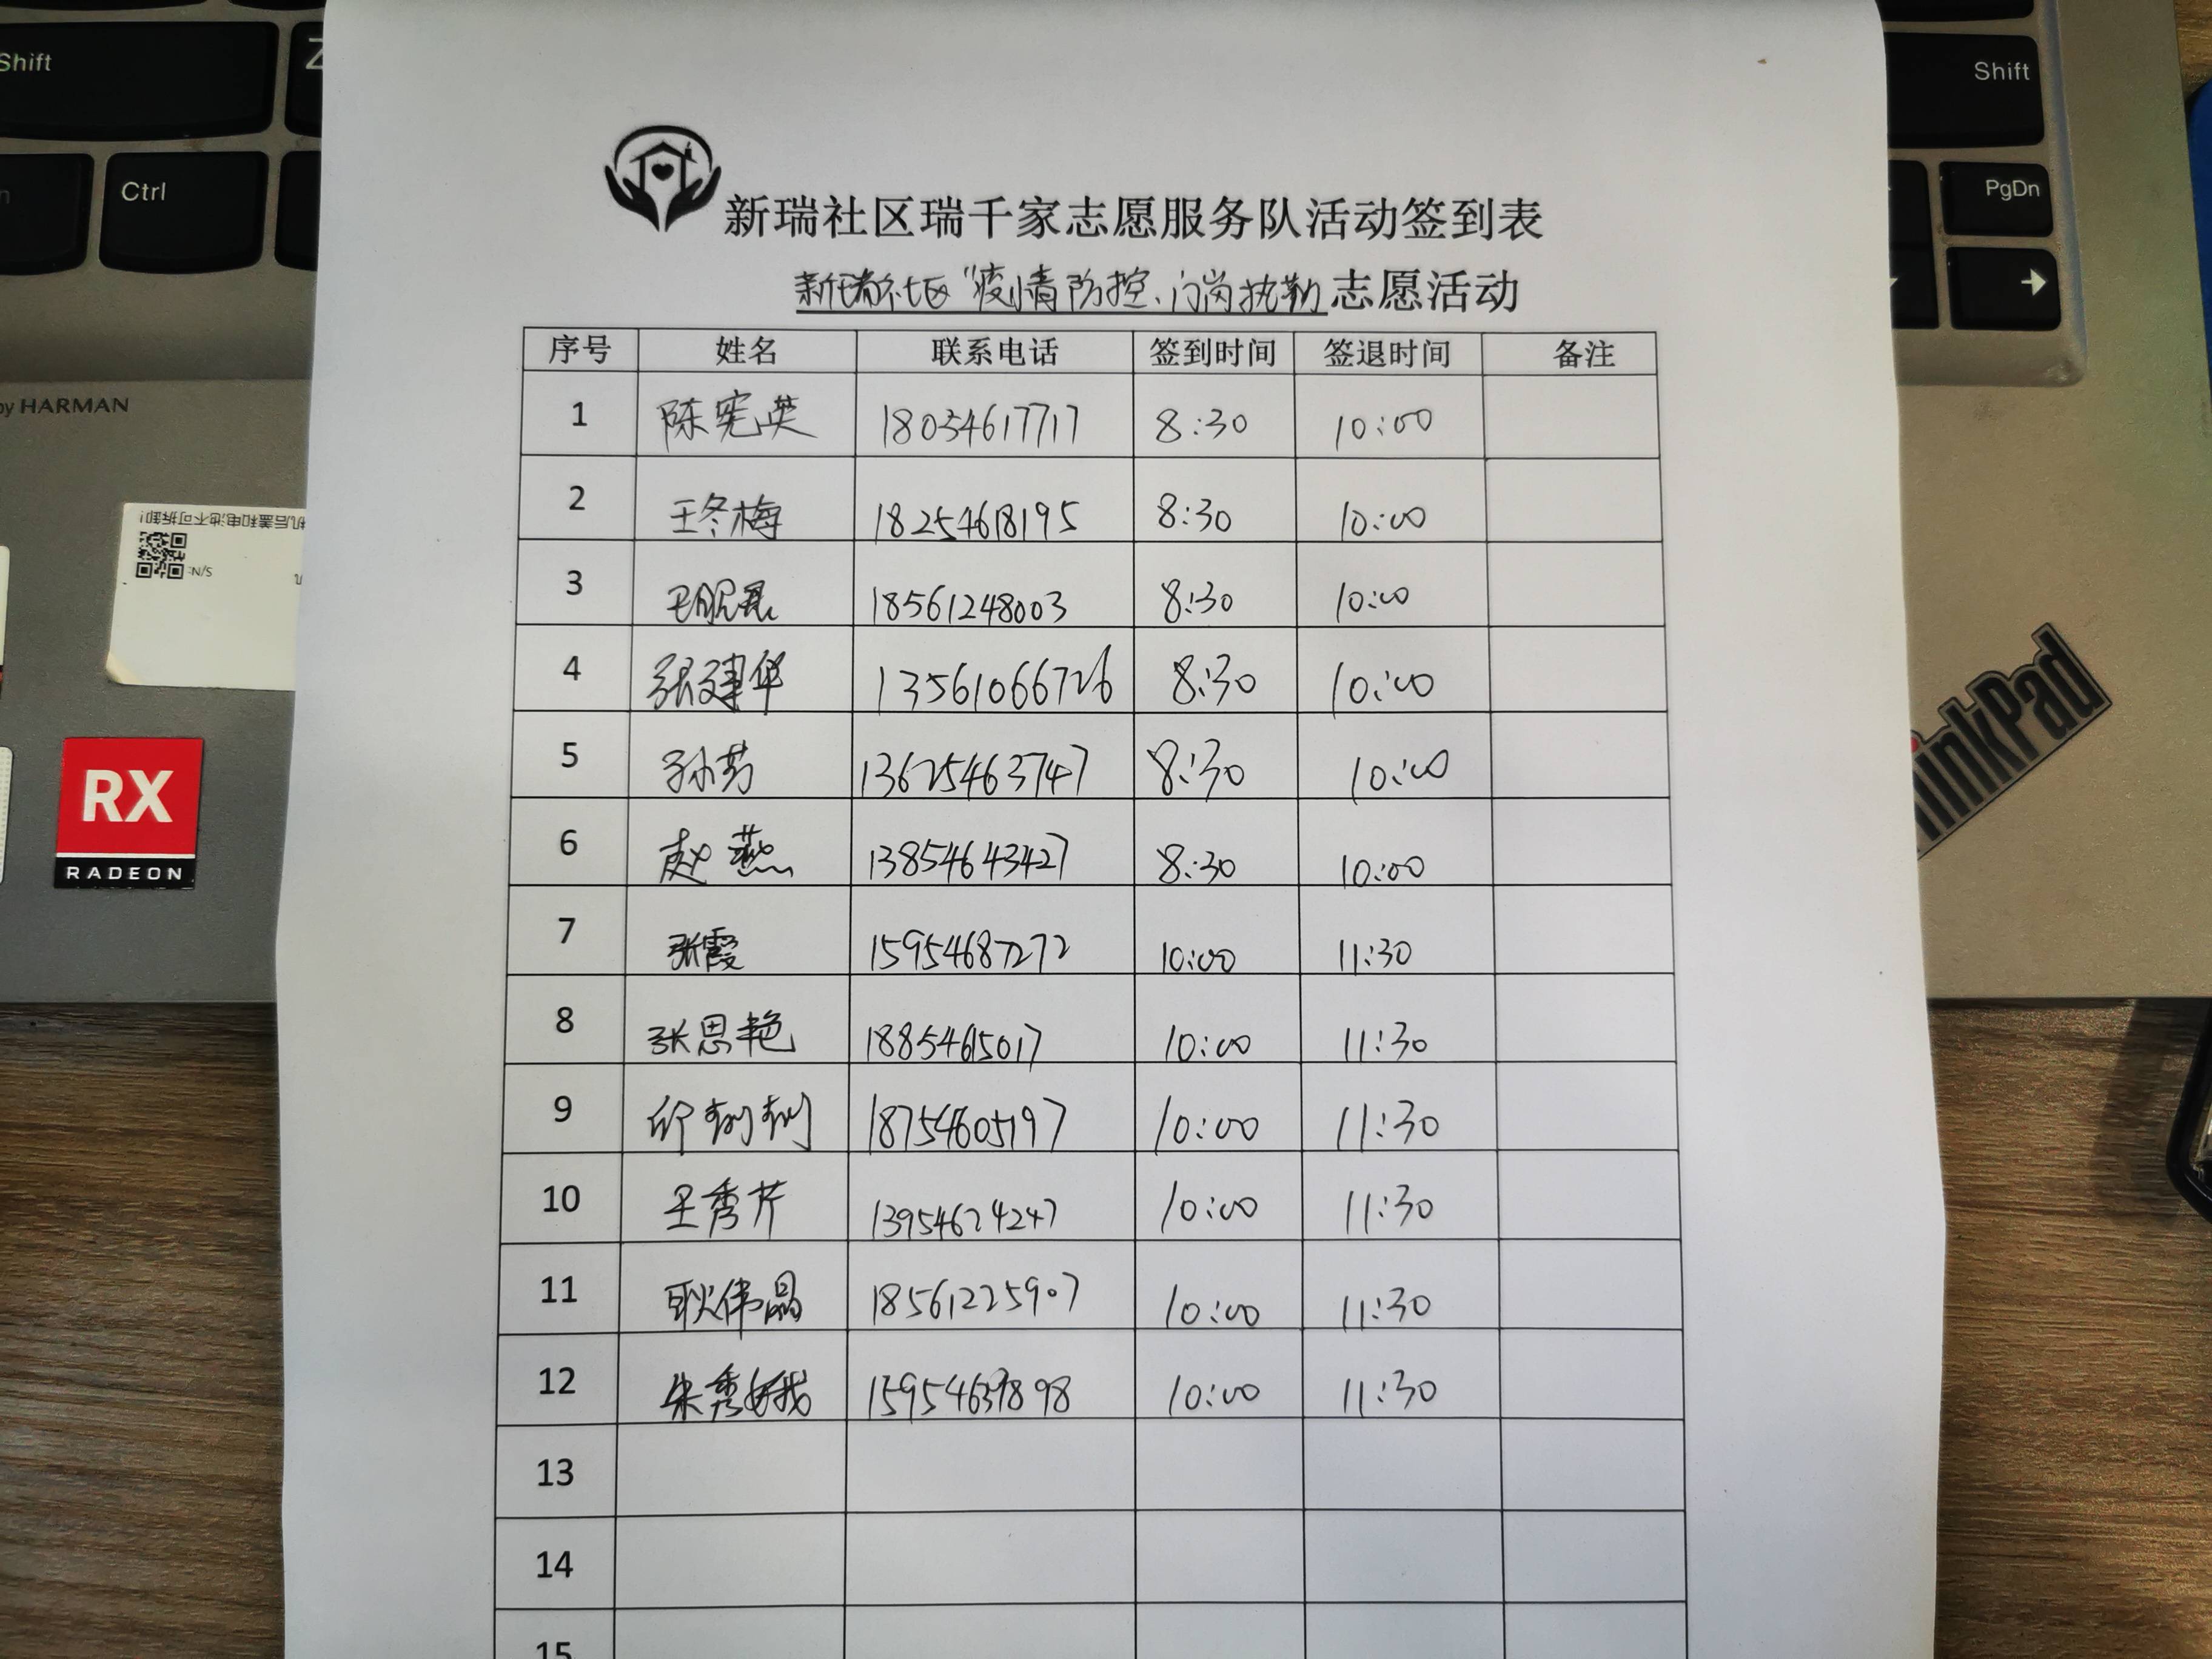 Shift
Z
Shift
Ctrl
PgDn
by HARMAN
机后盖和电池不可拆卸!
S/N:
RX
RADEON
ThinkPad
新瑞社区瑞千家志愿服务队活动签到表
新瑞社区"疫情防控、门岗执勤 志愿活动
序号 姓名 联系电话 签到时间 签退时间 备注
1 陈宪英 18054617717 8:30 10:00
2 王冬梅 18254618195 8:30 10:00
3 18561248003 8:30 10:00
4 张建华 13561066726 8:30 10:00
5 孙芳 13625463747 8:30 10:00
6 赵燕 13854643427 8:30 10:00
7 张霞 15954687272 10:00 11:30
8 张思艳 18854615017 10:00 11:30
9 18754605197 10:00 11:30
10 王秀芹 13954624247 10:00 11:30
11 耿伟晶 18561225907 10:00 11:30
12 朱秀娥 15954639898 10:00 11:30
13
14
15